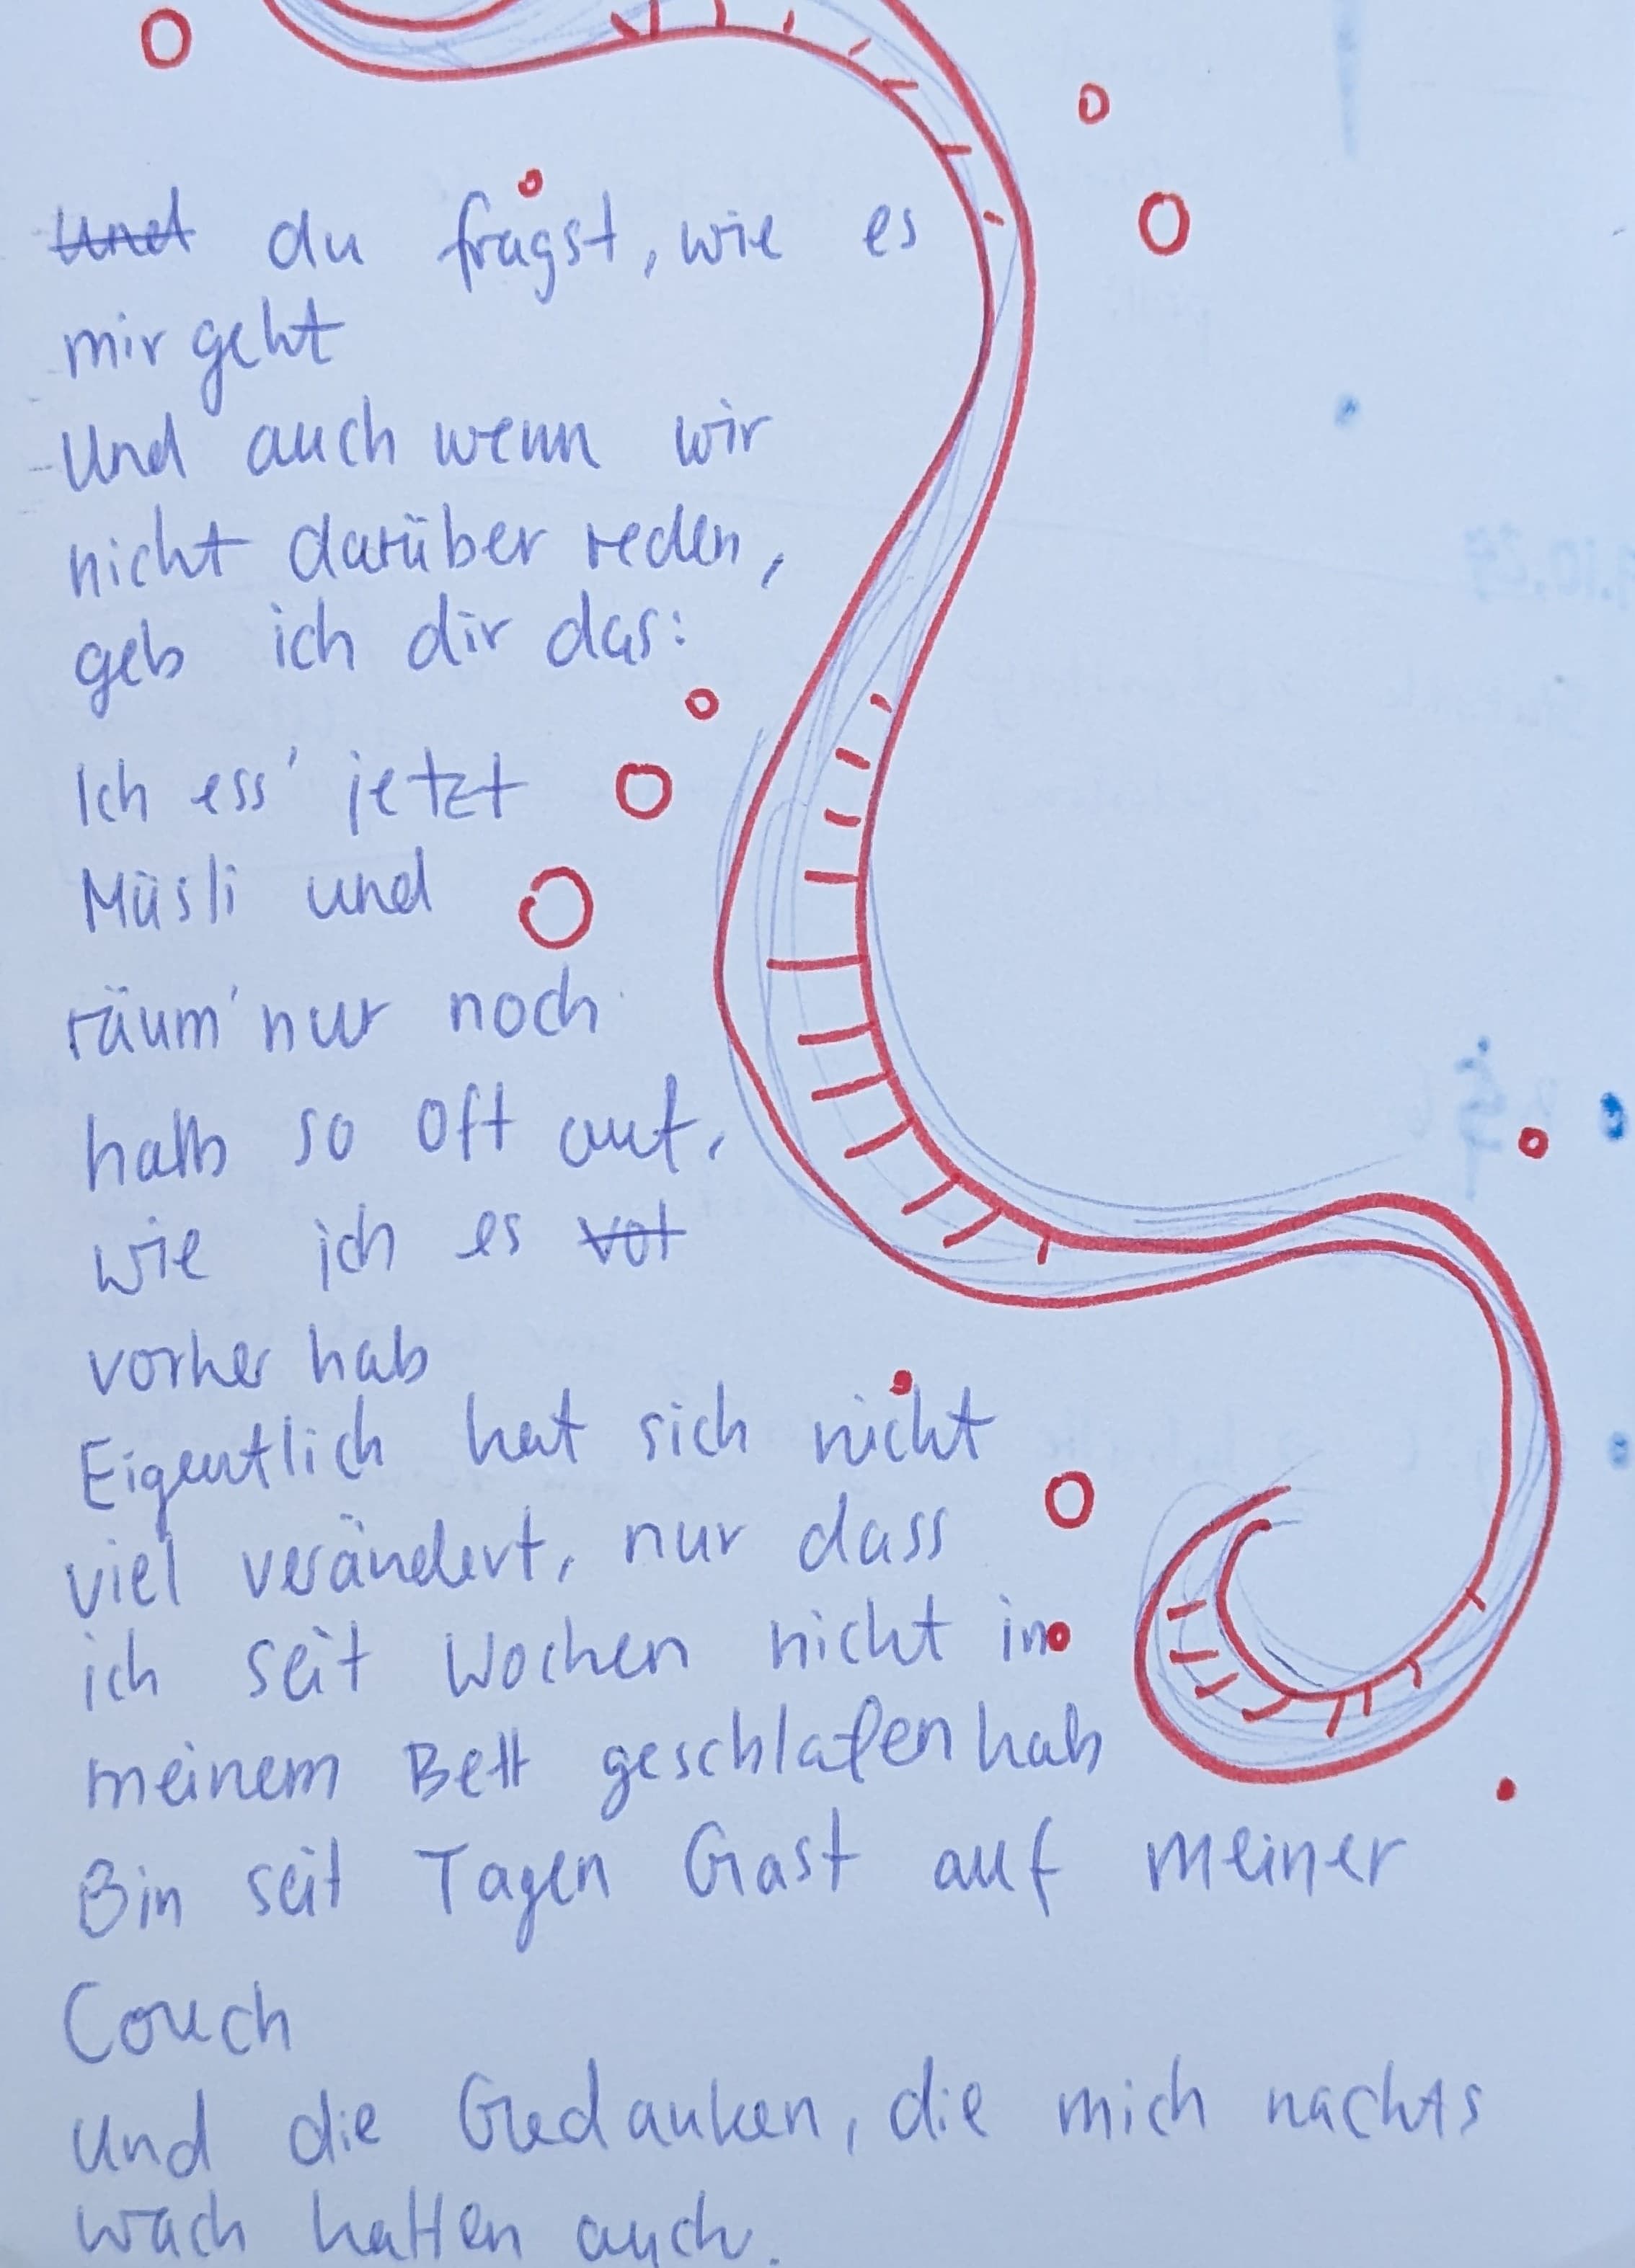 Und du fragst, wie es
mir geht
Und auch wenn wir
nicht darüber reden,
geb ich dir das:
Ich ess' jetzt
Müsli und
räum' nur noch
halb so oft auf,
wie ich es vor
vorher hab
Eigentlich hat sich nicht
viel verändert, nur dass
ich seit Wochen nicht in
meinem Bett geschlafen hab
Bin seit Tagen Gast auf meiner
Couch
Und die Gedanken, die mich nachts
wach halten auch.